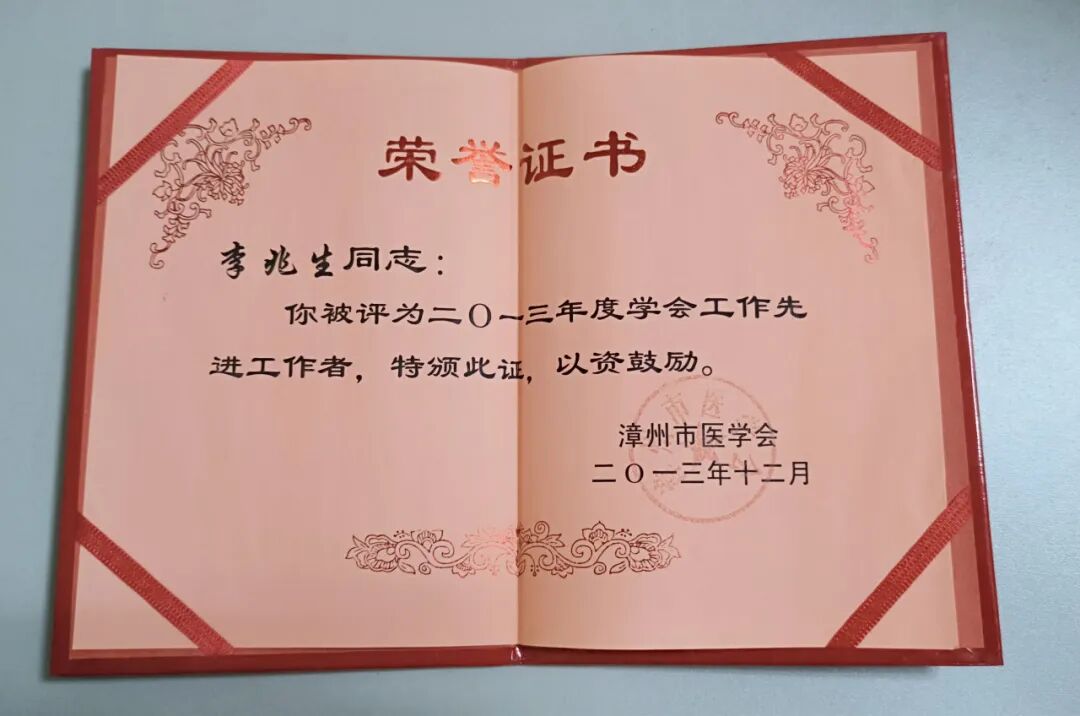 荣誉证书
李兆生同志：
你被评为二〇一三年度学会工作先
进工作者，特颁此证，以资鼓励。
漳州市医学会
二〇一三年十二月